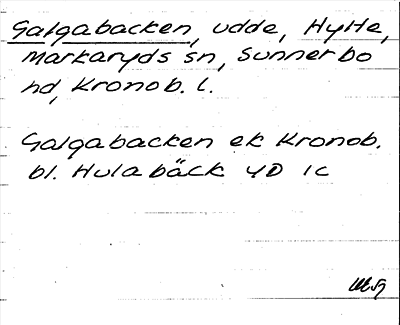 Galgabacken, udde, Hylte,
Markaryds sn, Sunnerbo
hd, Kronob. l.
Galgabacken ek Kronob.
bl. Hulabäck 4D 1c